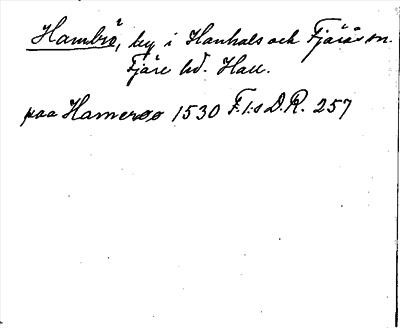 Hambrö, by i Hanhals och Fjärås sn.
Fjäre hd. Hall.
paa Hameroo 1530 F.I:s D.R. 257